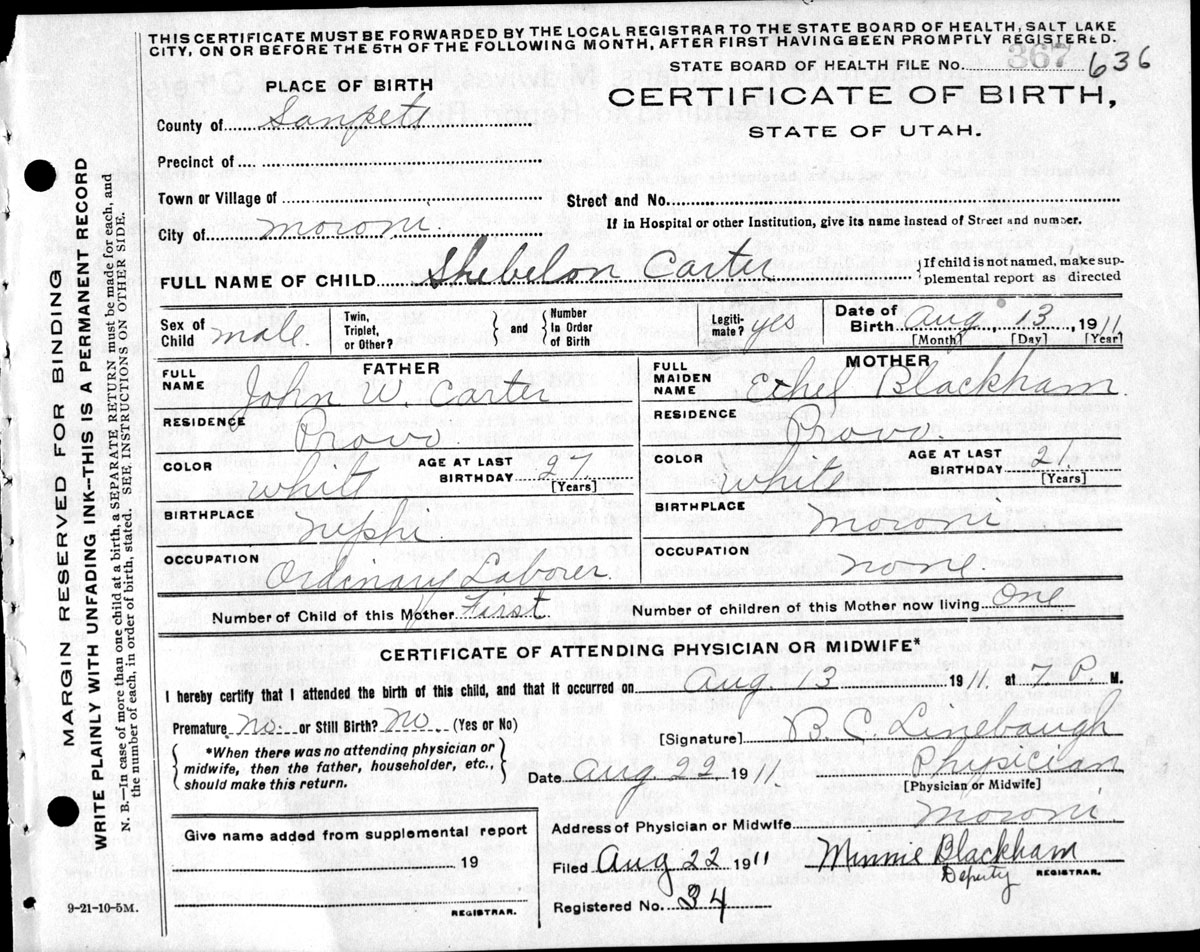 THIS CERTIFICATE MUST BE FORWARDED BY THE LOCAL REGISTRAR TO THE STATE BOARD OF HEALTH, SALT LAKE
CITY, ON OR BEFORE THE 5TH OF THE FOLLOWING MONTH, AFTER FIRST HAVING BEEN PROMPTLY REGISTERED.
STATE BOARD OF HEALTH FILE NO. 367 636
PLACE OF BIRTH
CERTIFICATE OF BIRTH,
STATE OF UTAH.
County of Sanpete
Precinct of
Town or Village of
Street and No.
City of Moroni
If in Hospital or other Institution, give its name instead of Street and number.
FULL NAME OF CHILD Shebelon Carter
If child is not named, make sup-
plemental report as directed
Sex of Child male
Twin, Triplet, or Other?
and
Number In Order of Birth
Legiti-mate? yes
Date of Birth Aug, 13, 1911
[Month] [Day] [Year]
FATHER
FULL NAME John W. Carter
RESIDENCE Provo
COLOR White
AGE AT LAST BIRTHDAY 27
[Years]
BIRTHPLACE Nephi
OCCUPATION Ordinary Laborer
MOTHER
FULL MAIDEN NAME Ethel Blackham
RESIDENCE Provo.
COLOR White
AGE AT LAST BIRTHDAY 21.
[Years]
BIRTHPLACE Moroni
OCCUPATION none
Number of Child of this Mother First
Number of children of this Mother now living One
CERTIFICATE OF ATTENDING PHYSICIAN OR MIDWIFE*
I hereby certify that I attended the birth of this child, and that it occurred on Aug. 13 1911. at 7 P. M.
Premature no. or Still Birth? no (Yes or No)
*When there was no attending physician or
midwife, then the father, householder, etc.,
should make this return.
[Signature] B. C. Linebaugh
Date Aug 22 1911. Physician
[Physician or Midwife]
Address of Physician or Midwife Moroni.
Give name added from supplemental report
19
REGISTRAR.
Filed Aug 22 1911 Minnie Blackham
Deputy REGISTRAR.
Registered No. 34
9-21-10-5M.
MARGIN RESERVED FOR BINDING
WRITE PLAINLY WITH UNFADING INK—THIS IS A PERMANENT RECORD
N. B.—In case of more than one child at a birth, a SEPARATE RETURN must be made for each, and
the number of each, in order of birth, stated. SEE INSTRUCTIONS ON OTHER SIDE.